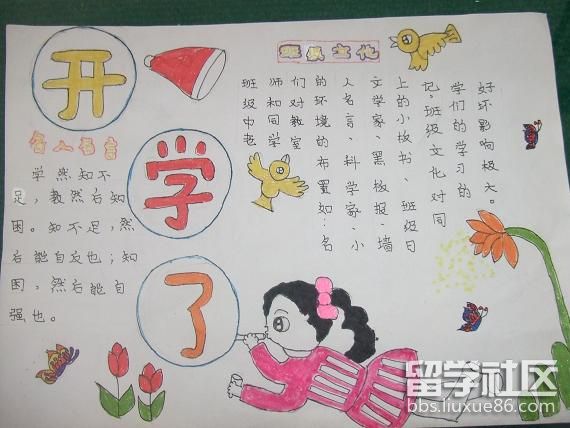 开
学
了
名人名言
学然知不
足，教然后知
困。知不足，然
后能自反也；知
困，然后能自
强也。
班级文化
班级中老
师和同学
们对教室
的环境的布置如：名
人名言、科学家、小
文学家、黑板报、墙
上的小板书、班级日
记。班级文化对同
学们的学习的
好坏影响极大。
留学社区
bbs.liuxue86.com